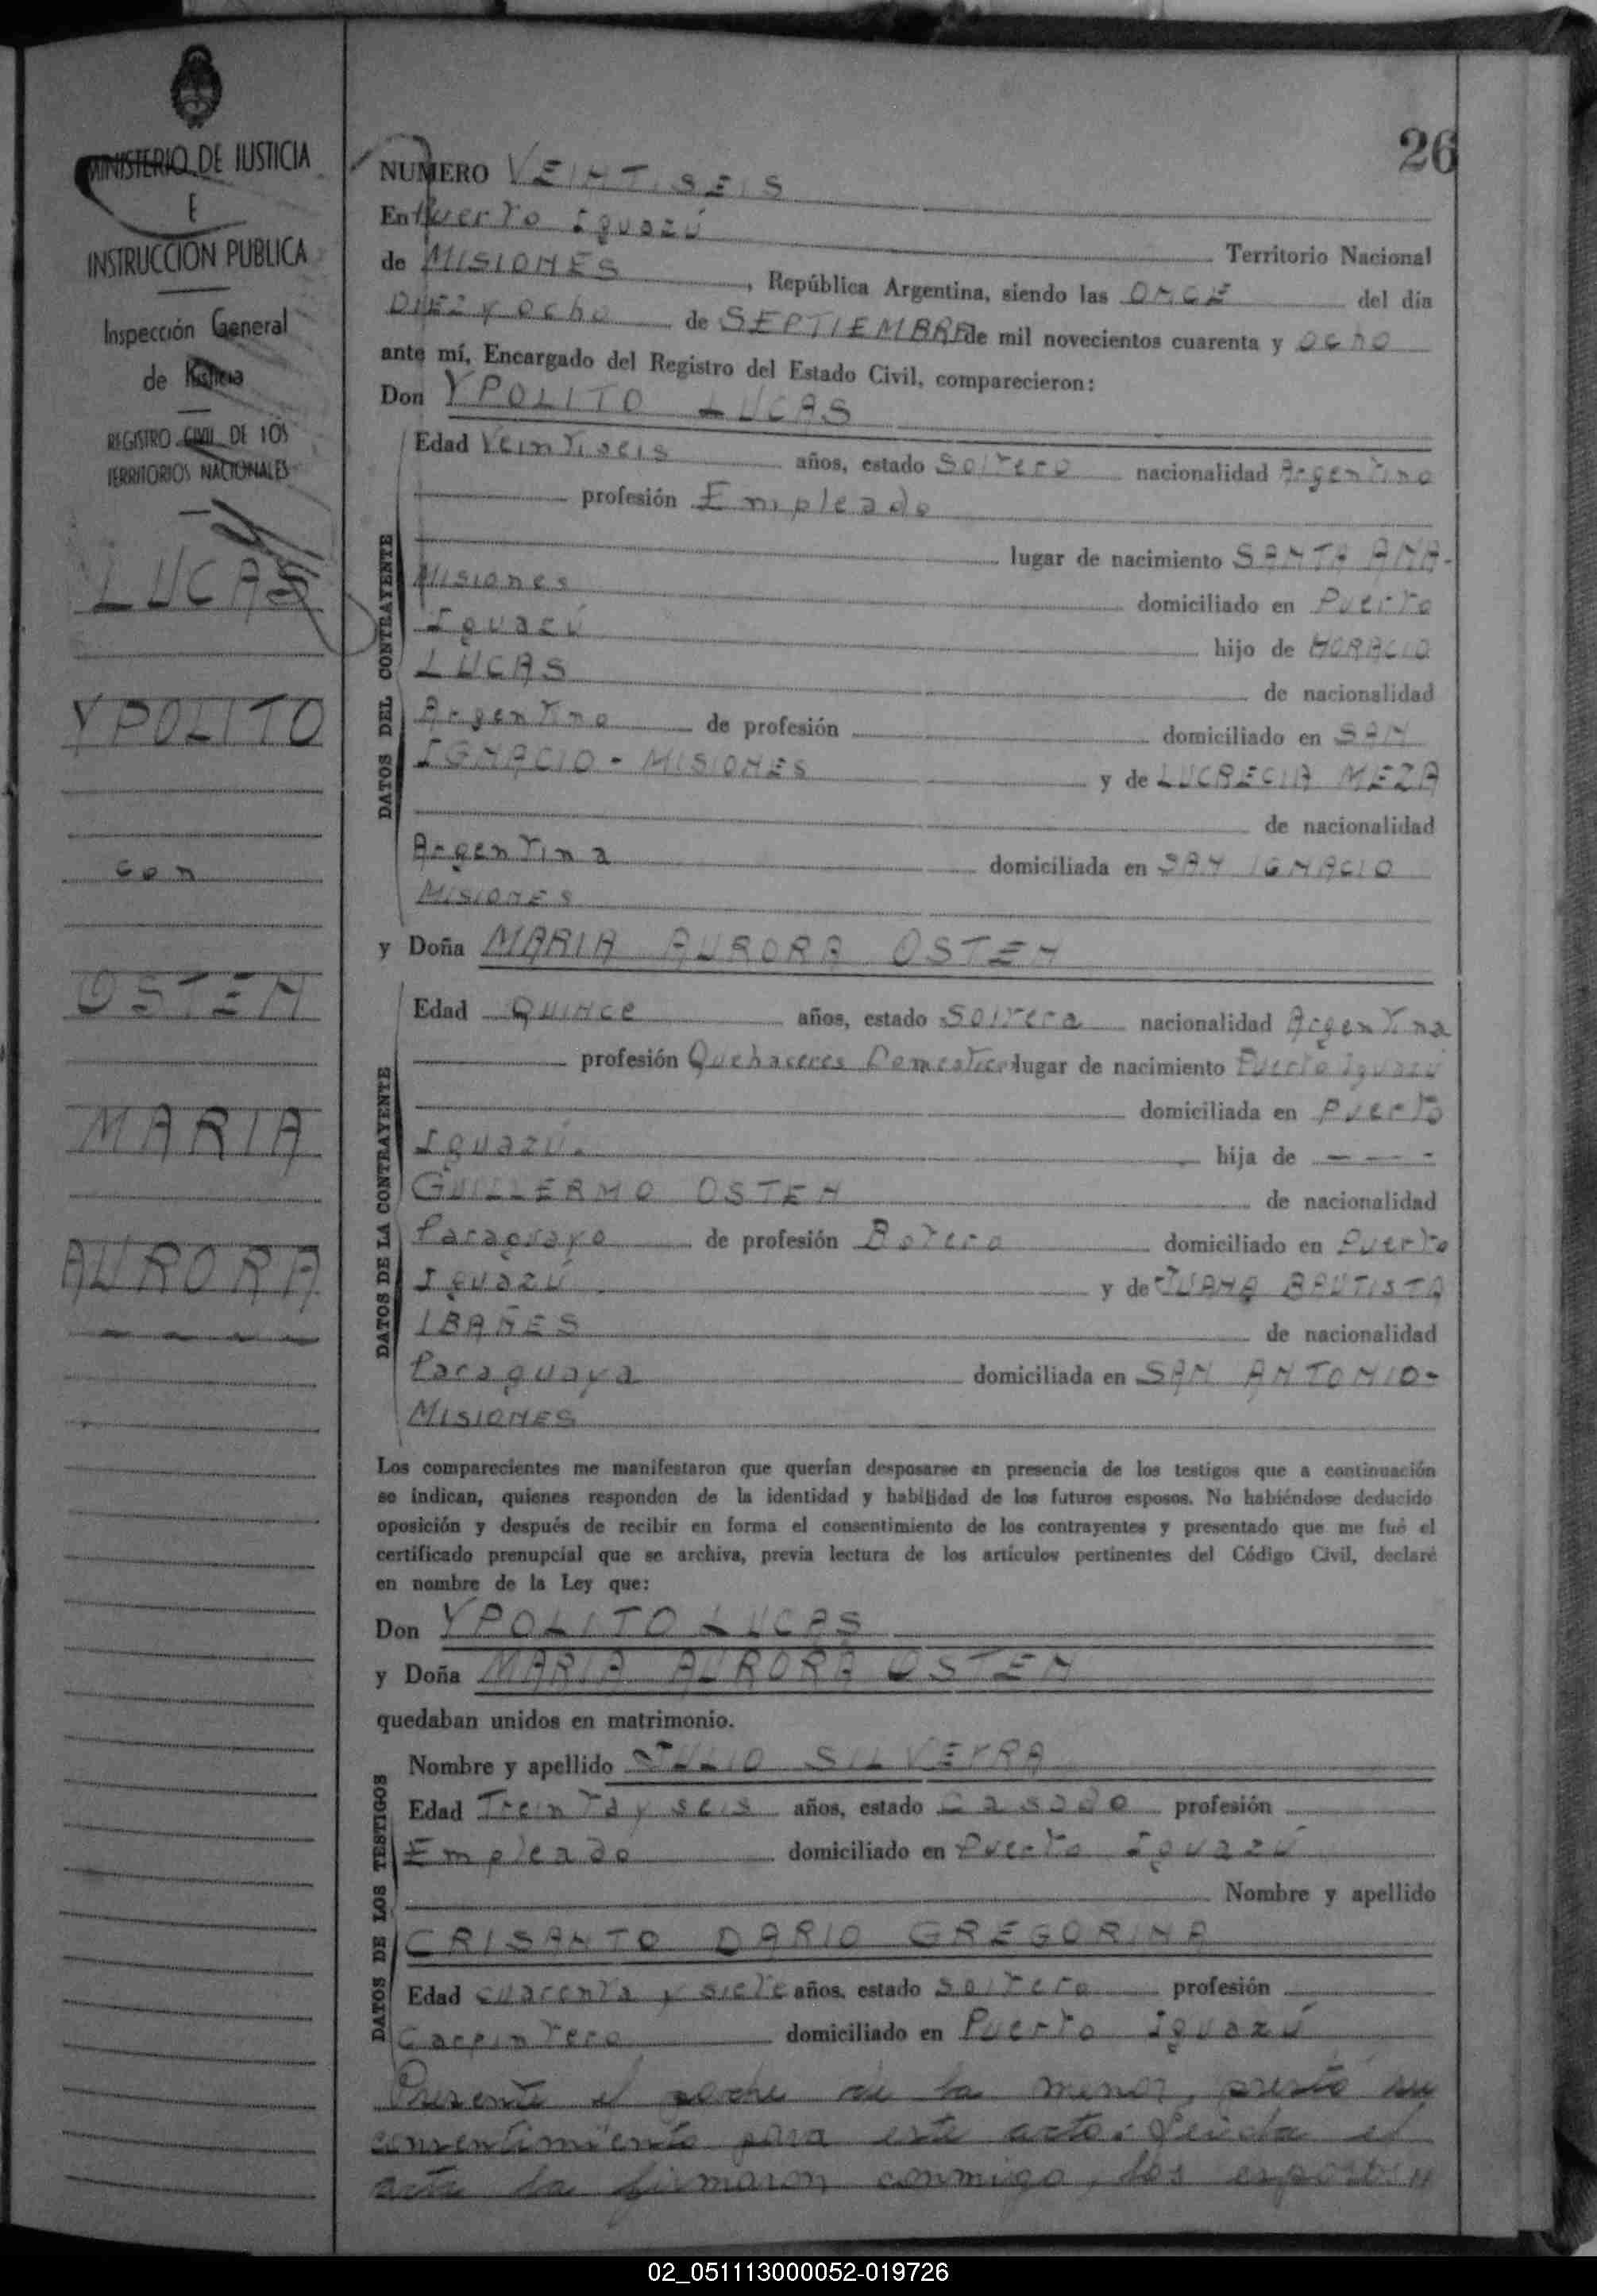 MINISTERIO DE JUSTICIA
E
INSTRUCCION PUBLICA
Inspección General
de Justicia
REGISTRO CIVIL DE LOS
TERRITORIOS NACIONALES
LUCAS
YPOLITO
con
OSTEN
MARIA
AURORA
26
NUMERO VEINTISEIS
En Puerto Iguazú Territorio Nacional
de MISIONES, República Argentina, siendo las ONCE del día
DIEZ y ocho de SEPTIEMBRE de mil novecientos cuarenta y ocho
ante mí, Encargado del Registro del Estado Civil, comparecieron:
Don YPOLITO LUCAS
DATOS DEL CONTRAYENTE
Edad Veintiseis años, estado Soltero nacionalidad Argentino
profesión Empleado
lugar de nacimiento SANTA ANA-
Misiones domiciliado en Puerto
Iguazú hijo de HORACIO
LUCAS de nacionalidad
Argentino de profesión domiciliado en SAN
IGNACIO - MISIONES y de LUCRECIA MEZA
de nacionalidad
Argentina domiciliada en SAN IGNACIO
MISIONES
y Doña MARIA AURORA OSTEN
DATOS DE LA CONTRAYENTE
Edad QUINCE años, estado Soltera nacionalidad Argentina
profesión Quehaceres Domesticos lugar de nacimiento Puerto Iguazú
domiciliada en Puerto
Iguazú. hija de - - -
GUILLERMO OSTEN de nacionalidad
Paraguayo de profesión Botero domiciliado en Puerto
Iguazú y de JUANA BAUTISTA
IBAÑES de nacionalidad
Paraguaya domiciliada en SAN ANTONIO-
MISIONES
Los comparecientes me manifestaron que querían desposarse en presencia de los testigos que a continuación
se indican, quienes responden de la identidad y habilidad de los futuros esposos. No habiéndose deducido
oposición y después de recibir en forma el consentimiento de los contrayentes y presentado que me fué el
certificado prenupcial que se archiva, previa lectura de los artículos pertinentes del Código Civil, declaré
en nombre de la Ley que:
Don YPOLITO LUCAS
y Doña MARIA AURORA OSTEN
quedaban unidos en matrimonio.
DATOS DE LOS TESTIGOS
Nombre y apellido JULIO SILVEYRA
Edad Treinta y seis años, estado Casado profesión
Empleado domiciliado en Puerto Iguazú
Nombre y apellido
CRISANTO DARIO GREGORINA
Edad cuarenta y siete años, estado soltero profesión
Carpintero domiciliado en Puerto Iguazú
Presente el padre de la menor, prestó su
consentimiento para este acto: Leída el
acta la firmaron conmigo, los esposos "
02_051113000052-019726